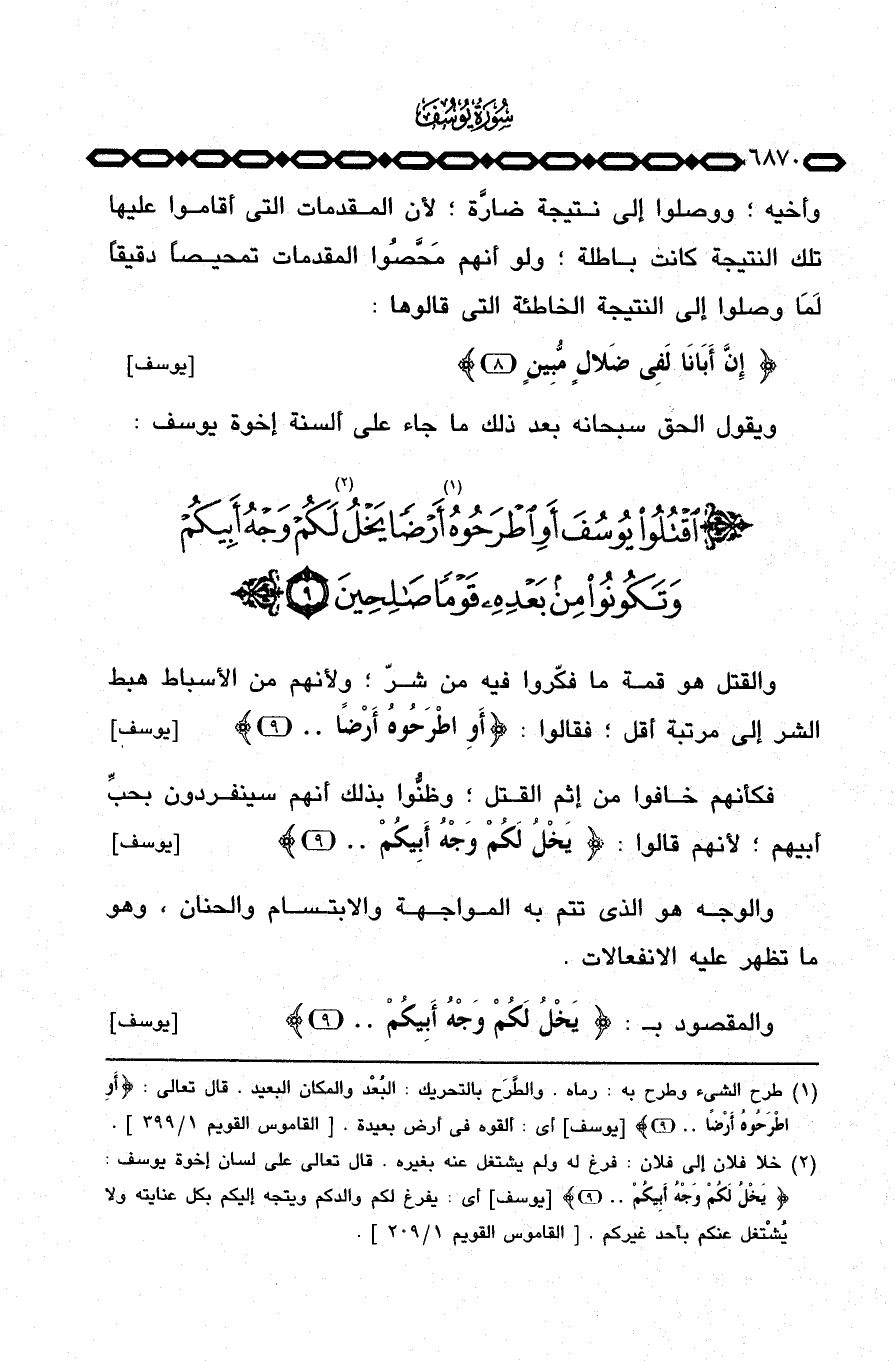 سُورَةُ يُوسُفَ
٦٨٧٠
وأخيه ؛ ووصلوا إلى نتيجة ضارَّة ؛ لأن المقدمات التى أقاموا عليها
تلك النتيجة كانت باطلة ؛ ولو أنهم مَحَّصُوا المقدمات تمحيصاً دقيقاً
لَمَا وصلوا إلى النتيجة الخاطئة التى قالوها :
﴿ إِنَّ أَبَانَا لَفِى ضَلالٍ مُّبِينٍ (٨) ﴾ [يوسف]
ويقول الحق سبحانه بعد ذلك ما جاء على ألسنة إخوة يوسف :
﴿ ٱقۡتُلُواْ يُوسُفَ أَوِ ٱطۡرَحُوهُ (١) أَرۡضٗا يَخۡلُ (٢) لَكُمۡ وَجۡهُ أَبِيكُمۡ
وَتَكُونُواْ مِنۢ بَعۡدِهِۦ قَوۡمٗا صَٰلِحِينَ ٩ ﴾
والقتل هو قمة ما فكّروا فيه من شرّ ؛ ولأنهم من الأسباط هبط
الشر إلى مرتبة أقل ؛ فقالوا : ﴿ أَوِ اطْرَحُوهُ أَرْضًا .. (٩) ﴾ [يوسف]
فكأنهم خافوا من إثم القتل ؛ وظنُّوا بذلك أنهم سينفردون بحبِّ
أبيهم ؛ لأنهم قالوا : ﴿ يَخْلُ لَكُمْ وَجْهُ أَبِيكُمْ .. (٩) ﴾ [يوسف]
والوجه هو الذى تتم به المواجهة والابتسام والحنان ، وهو
ما تظهر عليه الانفعالات .
والمقصود بـ : ﴿ يَخْلُ لَكُمْ وَجْهُ أَبِيكُمْ .. (٩) ﴾ [يوسف]
(١) طرح الشىء وطرح به : رماه . والطَّرَح بالتحريك : البُعْد والمكان البعيد . قال تعالى : ﴿ أَوِ
اطْرَحُوهُ أَرْضًا .. (٩) ﴾ [يوسف] أى : ألقوه فى أرض بعيدة . [ القاموس القويم ٣٩٩/١ ] .
(٢) خلا فلان إلى فلان : فرغ له ولم يشتغل عنه بغيره . قال تعالى على لسان إخوة يوسف :
﴿ يَخْلُ لَكُمْ وَجْهُ أَبِيكُمْ .. (٩) ﴾ [يوسف] أى : يفرغ لكم والدكم ويتجه إليكم بكل عنايته ولا
يُشْتغل عنكم بأحد غيركم . [ القاموس القويم ٢٠٩/١ ] .